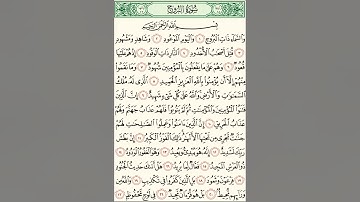 سُورَةُ البُرُوجِ
بِسْمِ ٱللَّهِ ٱلرَّحْمَٰنِ ٱلرَّحِيمِ
وَٱلسَّمَآءِ ذَاتِ ٱلْبُرُوجِ ١ وَٱلْيَوْمِ ٱلْمَوْعُودِ ٢ وَشَاهِدٍ وَمَشْهُودٍ
٣ قُتِلَ أَصْحَٰبُ ٱلْأُخْدُودِ ٤ ٱلنَّارِ ذَاتِ ٱلْوَقُودِ ٥ إِذْ هُمْ عَلَيْهَا
قُعُودٌ ٦ وَهُمْ عَلَىٰ مَا يَفْعَلُونَ بِٱلْمُؤْمِنِينَ شُهُودٌ ٧ وَمَا نَقَمُوا۟
مِنْهُمْ إِلَّآ أَن يُؤْمِنُوا۟ بِٱللَّهِ ٱلْعَزِيزِ ٱلْحَمِيدِ ٨ ٱلَّذِى لَهُۥ مُلْكُ
ٱلسَّمَٰوَٰتِ وَٱلْأَرْضِ وَٱللَّهُ عَلَىٰ كُلِّ شَىْءٍ شَهِيدٌ ٩ إِنَّ ٱلَّذِينَ فَتَنُوا۟
ٱلْمُؤْمِنِينَ وَٱلْمُؤْمِنَٰتِ ثُمَّ لَمْ يَتُوبُوا۟ فَلَهُمْ عَذَابُ جَهَنَّمَ وَلَهُمْ
عَذَابُ ٱلْحَرِيقِ ١٠ إِنَّ ٱلَّذِينَ ءَامَنُوا۟ وَعَمِلُوا۟ ٱلصَّٰلِحَٰتِ لَهُمْ
جَنَّٰتٌ تَجْرِى مِن تَحْتِهَا ٱلْأَنْهَٰرُ ذَٰلِكَ ٱلْفَوْزُ ٱلْكَبِيرُ ١١ إِنَّ بَطْشَ
رَبِّكَ لَشَدِيدٌ ١٢ إِنَّهُۥ هُوَ يُبْدِئُ وَيُعِيدُ ١٣ وَهُوَ ٱلْغَفُورُ ٱلْوَدُودُ ١٤
ذُو ٱلْعَرْشِ ٱلْمَجِيدُ ١٥ فَعَّالٌ لِّمَا يُرِيدُ ١٦ هَلْ أَتَىٰكَ حَدِيثُ ٱلْجُنُودِ
١٧ فِرْعَوْنَ وَثَمُودَ ١٨ بَلِ ٱلَّذِينَ كَفَرُوا۟ فِى تَكْذِيبٍ ١٩ وَٱللَّهُ مِن
وَرَآئِهِم مُّحِيطٌ ٢٠ بَلْ هُوَ قُرْءَانٌ مَّجِيدٌ ٢١ فِى لَوْحٍ مَّحْفُوظٍ ٢٢